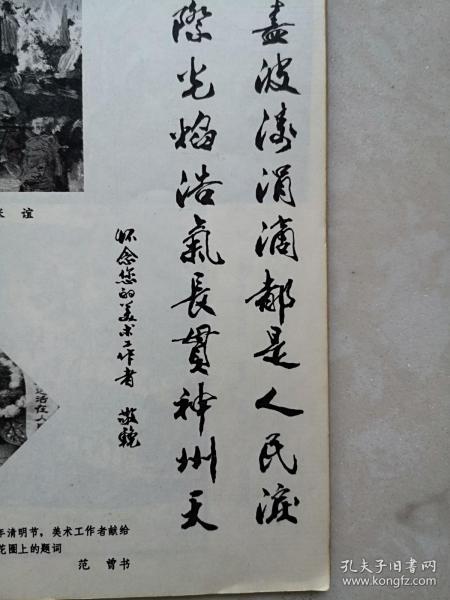 盡波濤涓滴都是人民淚
際光焰浩氣長貫神州天
怀念您的美术工作者 敬輓
谊
活在人
年清明节，美术工作者献给
花圈上的题词
范 曾书
孔夫子旧书网
www.kongfz.com